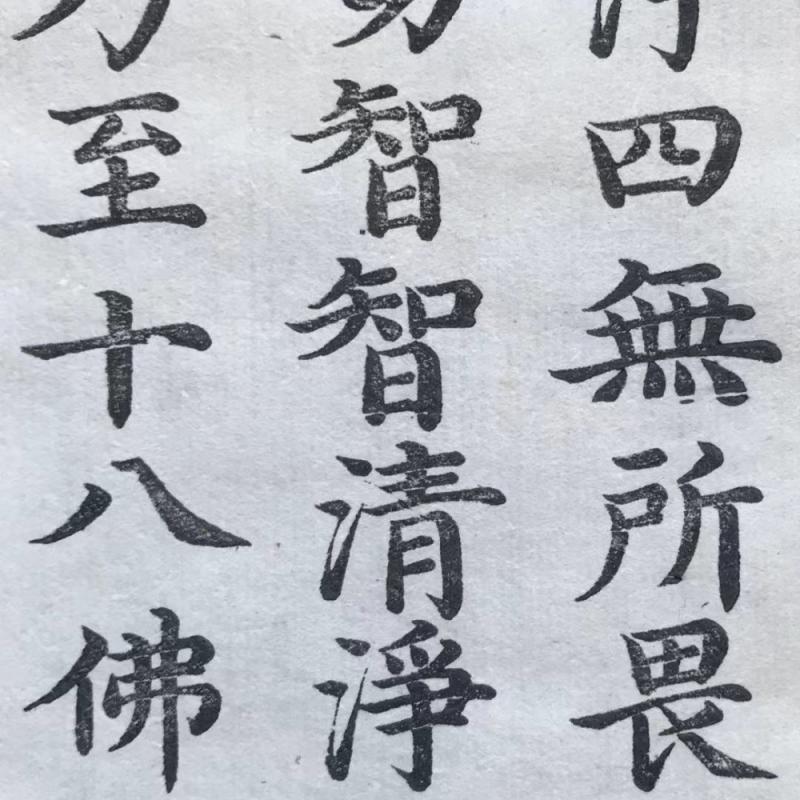 四無所畏
切智智清淨
乃至十八佛